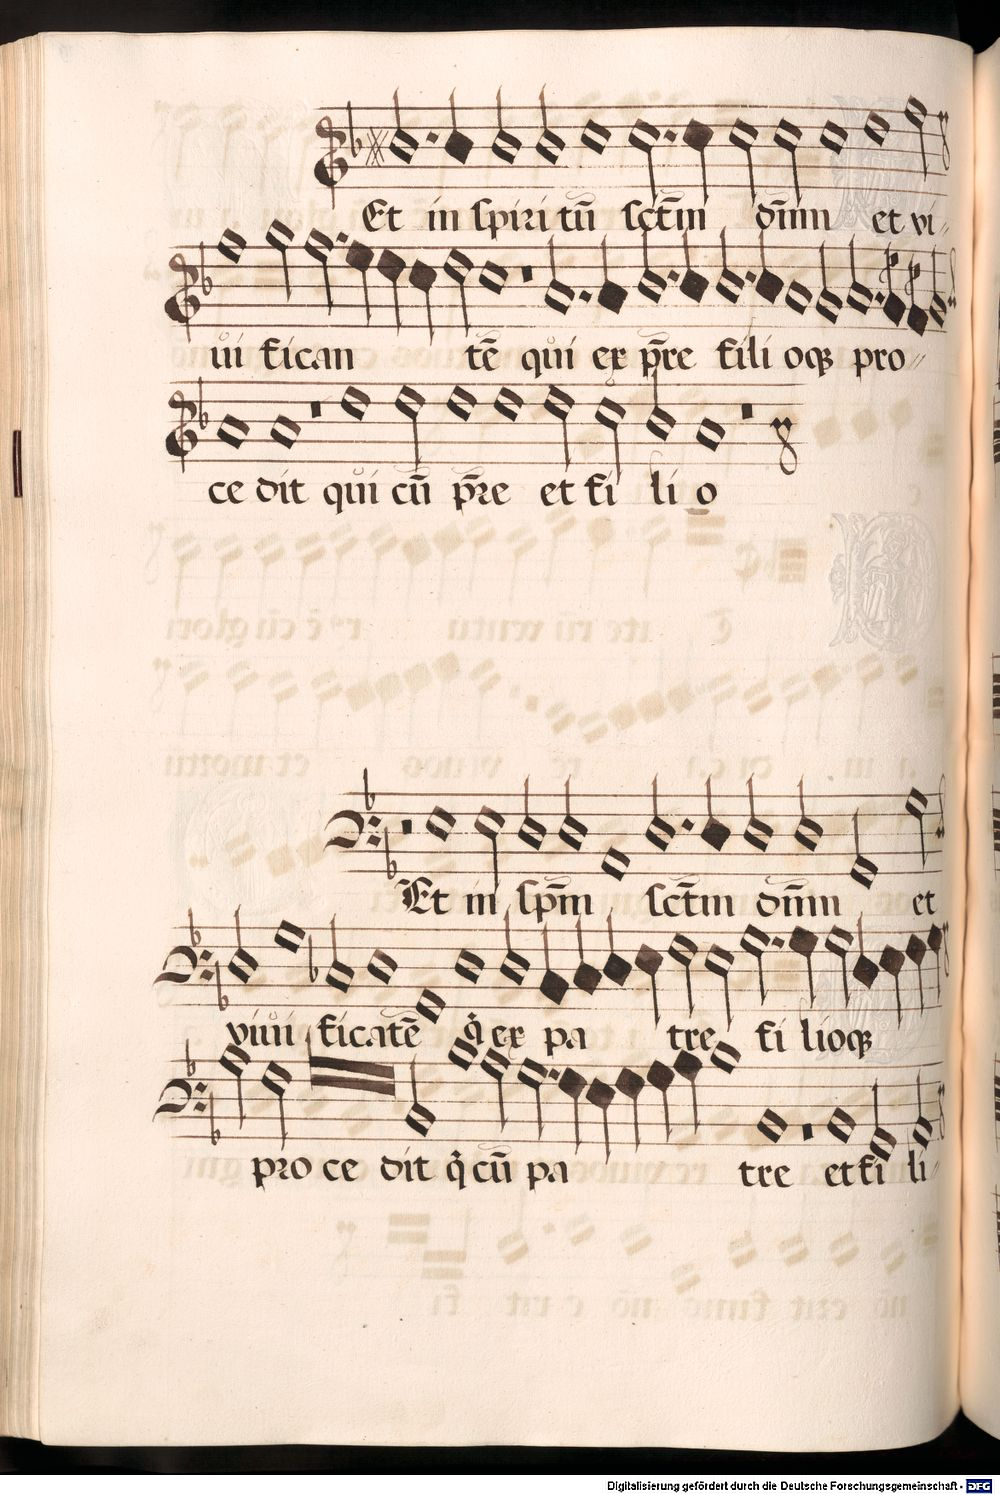 Et in spiri tū sct̄m dn̄m et vi
ui fican tē qui ex pr̄e fili oqꝫ pro
ce dit qui cū pr̄e et fi li o
Et in sp̄m sct̄m dn̄m et
viui ficatē q̇ ex pa tre fi lioqꝫ
pro ce dit q̇ cū pa tre et fi li
Digitalisierung gefördert durch die Deutsche Forschungsgemeinschaft - DFG